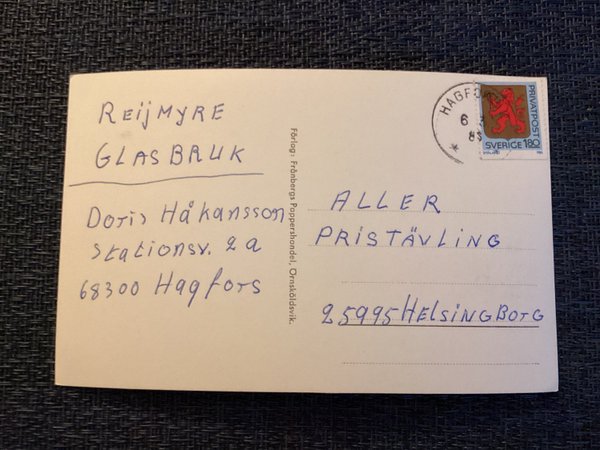 ReijMyRE
GLASBRUK
Doris Håkansson
Stationsv. 2a
68300 Hagfors
Förlag: Frånbergs Pappershandel, Ornsköldsvik.
HAGFO
6
85
PRIVATPOST
SVERIGE 180
ALLER
PRISTÄVLING
25995 HELSINGBorG